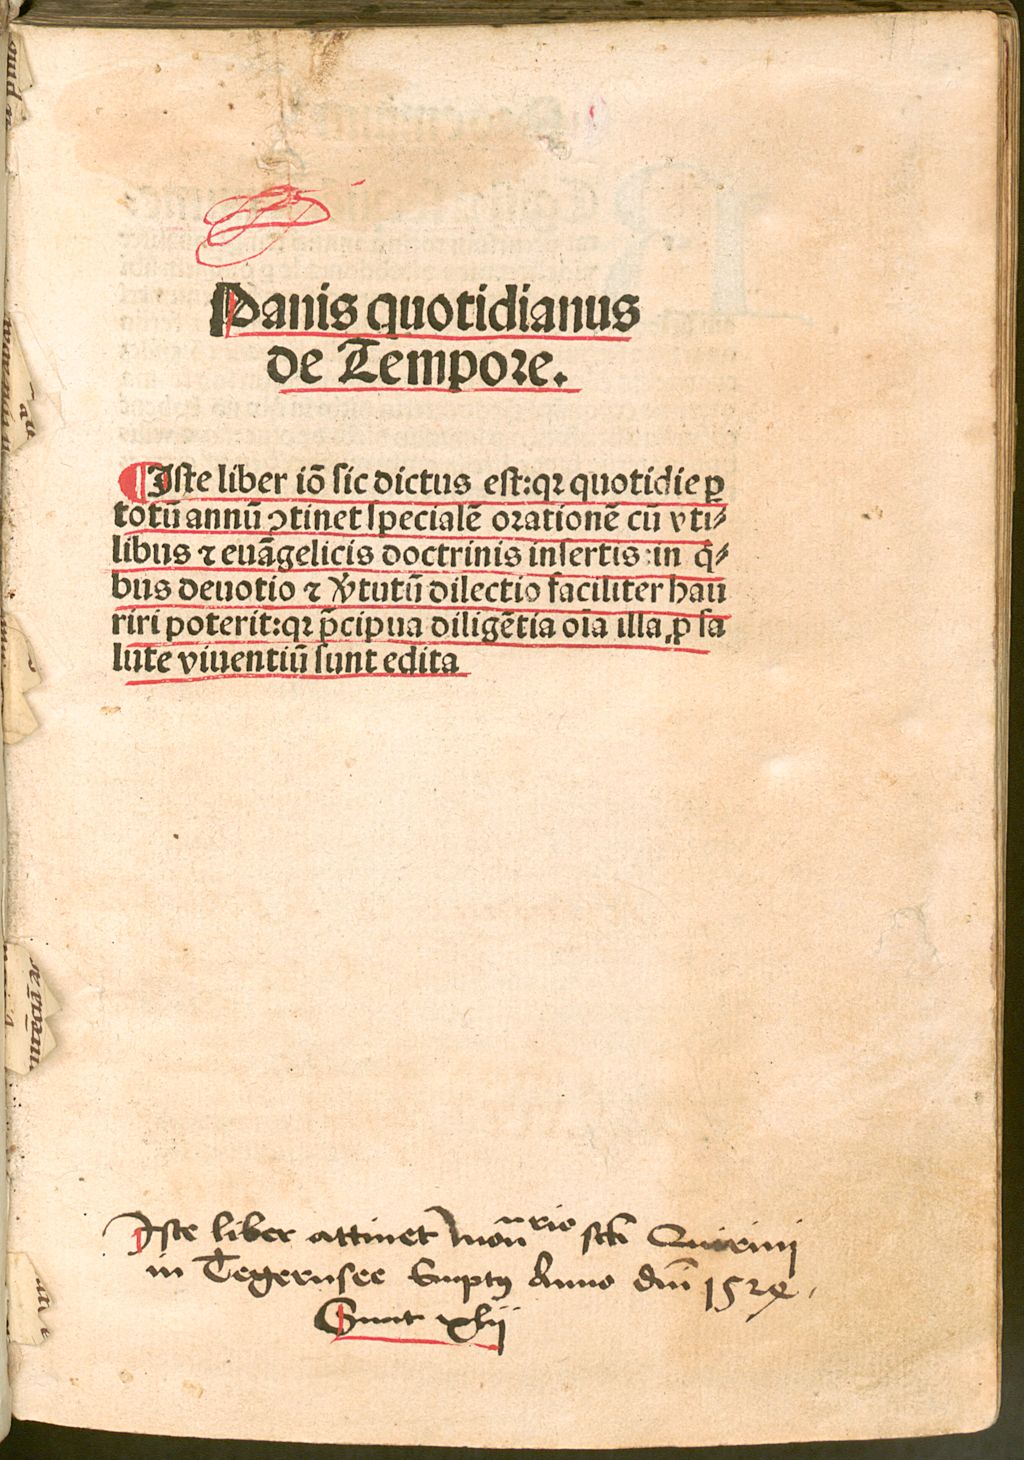 Panis quotidianus
de Tempore.
Iste liber iō sic dictus est: qꝛ quotidie ꝑ
totū annū ꝯtinet specialē orationē cū vti⸗
libus ⁊ euāgelicis doctrinis insertis: in q̄⸗
bus deuotio ⁊ v̄tutū dilectio faciliter hau
riri poterit: qꝛ p̄cipua diligētia oīa illa, ꝓ sa
lute viuentiū sunt edita
Iste liber attinet mōn rio scti Quirini
in Tegernsee Emptꝰ Anno dn̄i 1524.